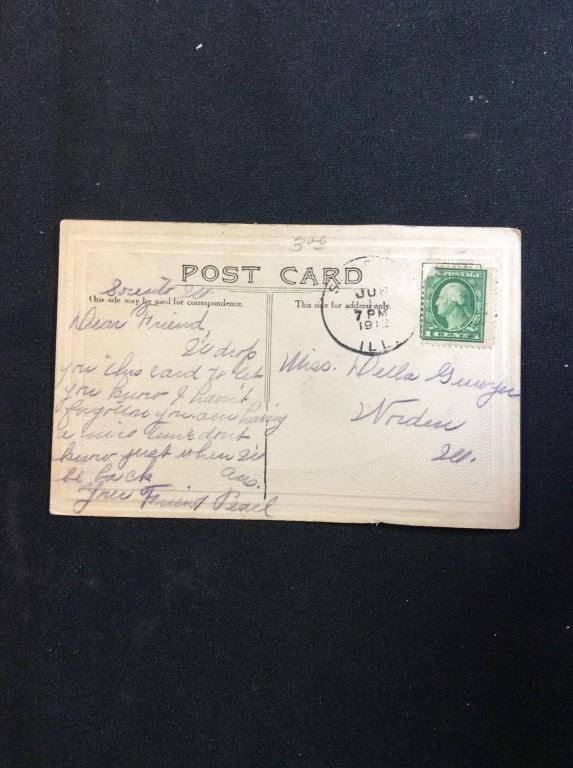 3.00
POST CARD
Sorento Ill
This side may be used for correspondence.
This side for address only.
Dear Friend,
I'll drop
you this card to let
you know I haven't
forgotten you. am having
a nice time dont
know just when I'll
be back ans.
Your Friend Pearl
Miss. Della
Worden
Ill.
S
JUN
7 PM
ILL.
U.S. POSTAGE
1 CENT 1